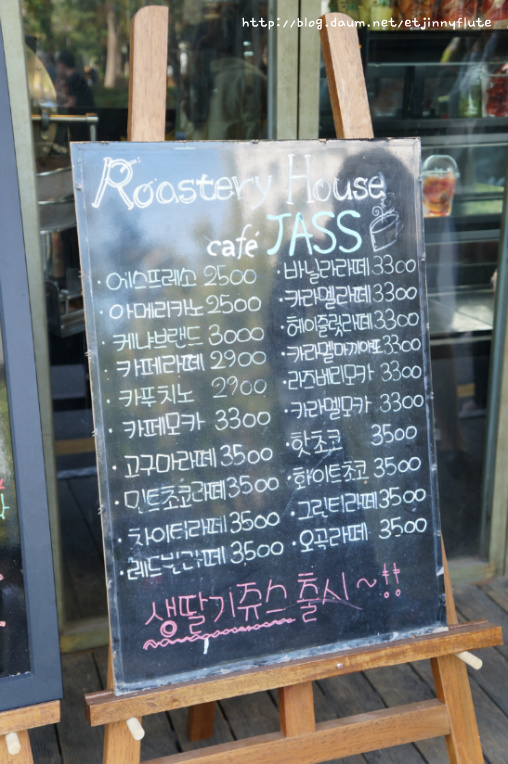 http://blog.daum.net/etjinnyflute
Roastery House
café JASS
·에스프레소 2500
·아메리카노 2500
·케냐브랜드 3000
·카페라떼 2900
·카푸치노 2900
·카페모카 3300
·고구마라떼 3500
·민트초코라떼 3500
·차이티라떼 3500
·레드빈라떼 3500
·바닐라라떼 3300
·카라멜라떼 3300
·헤이즐릿라떼 3300
·카라멜마끼아또 3300
·라즈베리모카 3300
·카라멜모카 3300
·핫초코 3500
·화이트초코 3500
·그린티라떼 3500
·오곡라떼 3500
생딸기쥬스 출시~!!